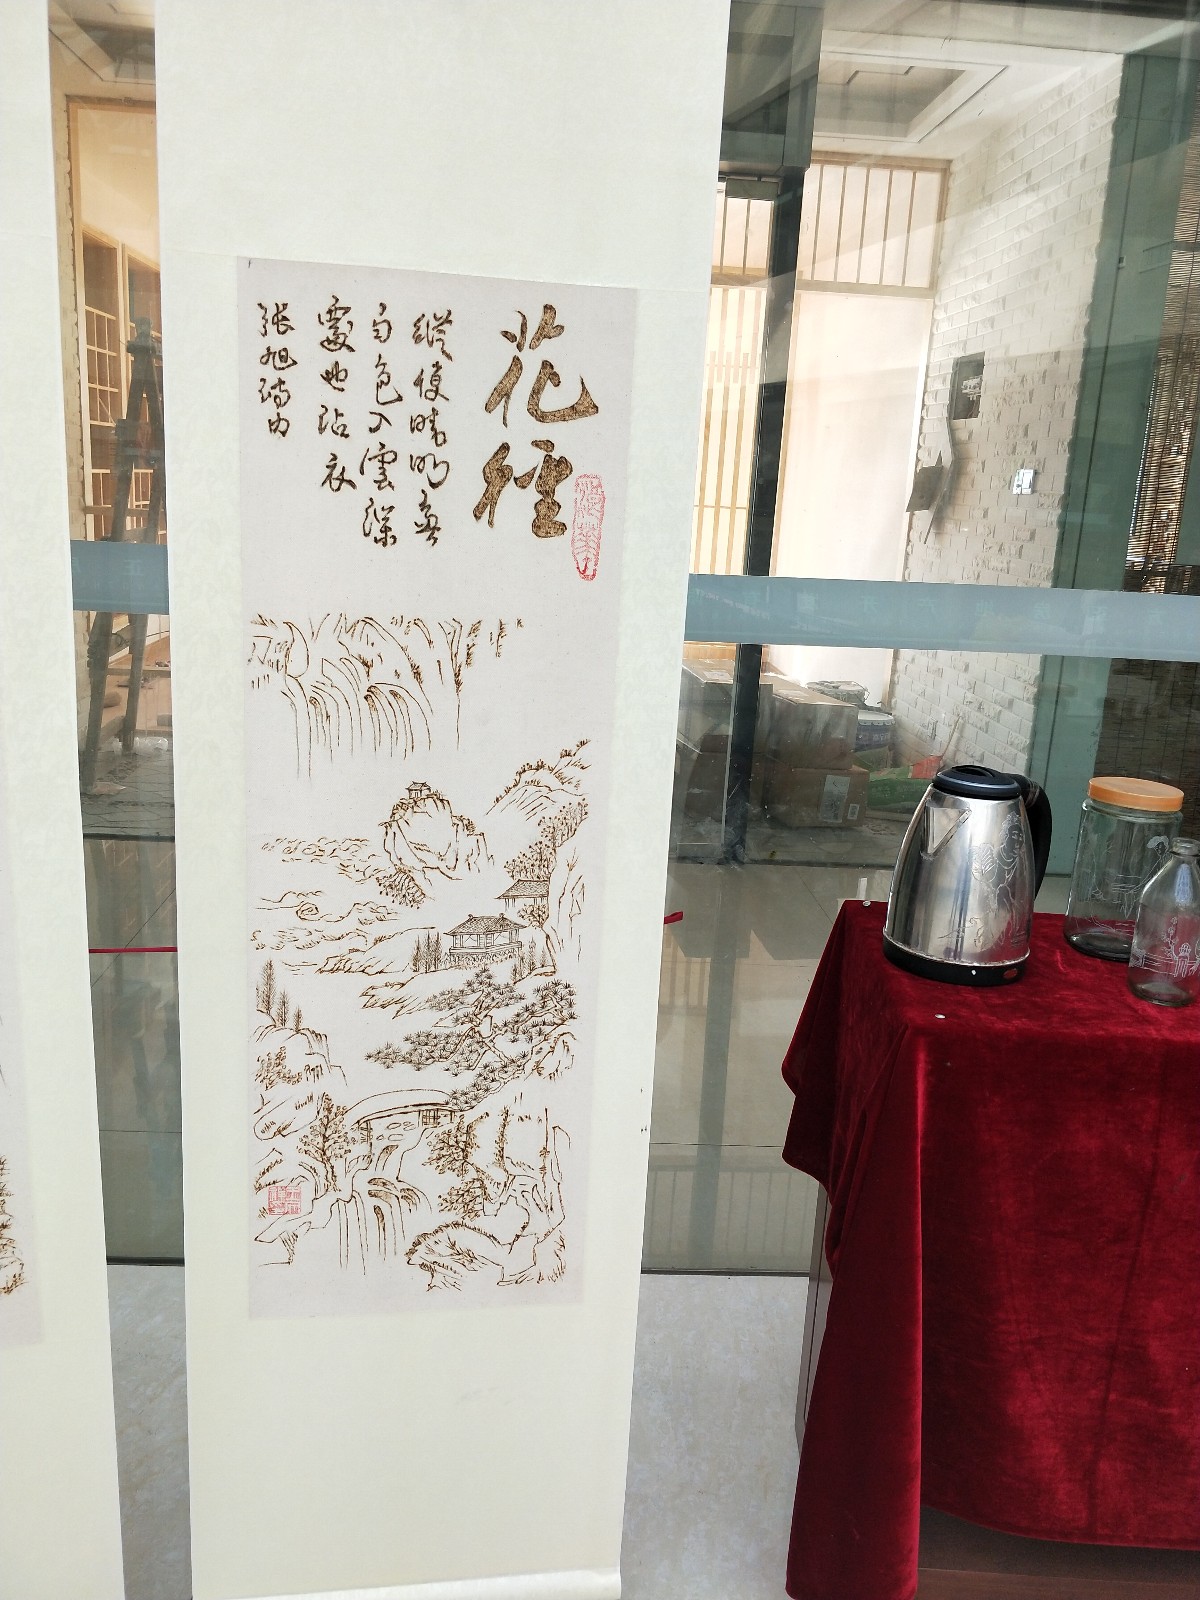 花徑
縱使晴明無
雨色入雲深
處也沾衣
張旭詩句